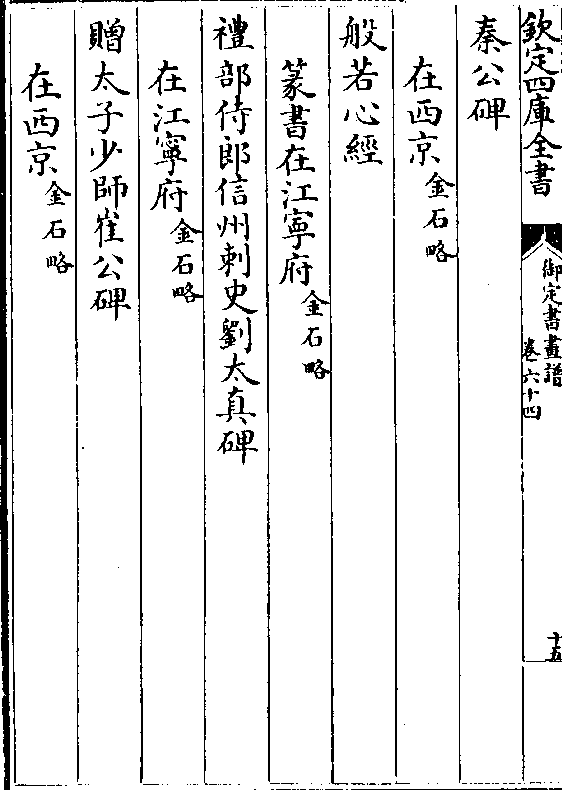 欽定四庫全書
御定書畫譜
卷六十四
十五
秦公碑
在西京金石略
般若心經
篆書在江寧府金石略
禮部侍郎信州刺史劉太真碑
在江寧府金石略
贈太子少師崔公碑
在西京金石略